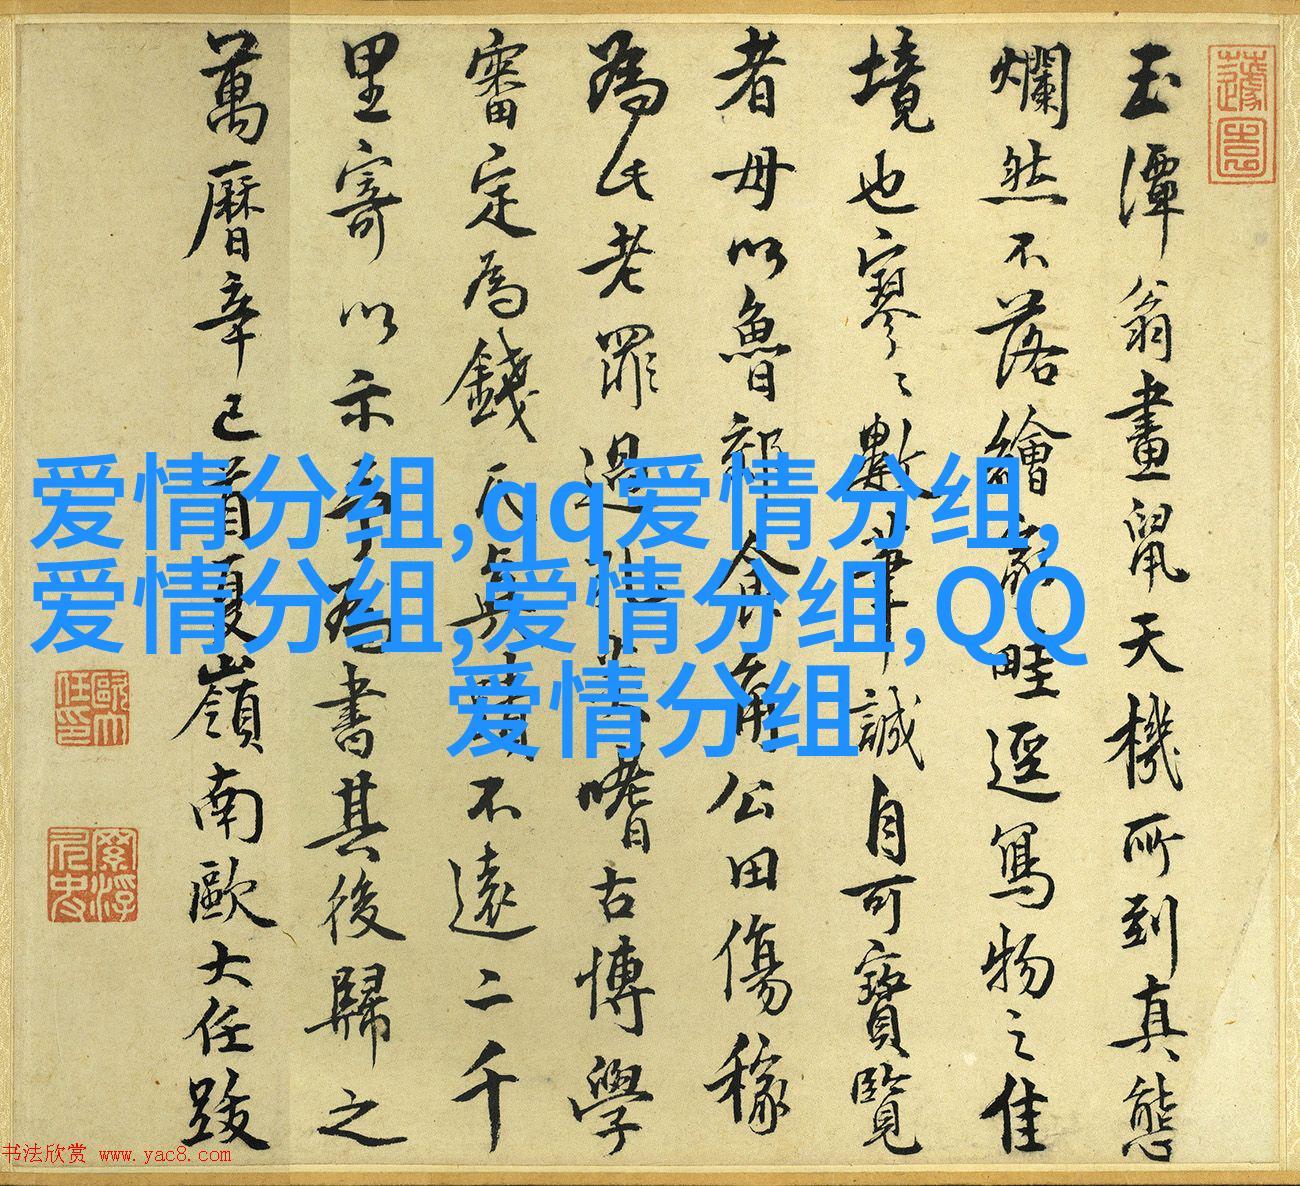 玉潭翁畫鼠天機所到真態
爛然不落繪家畦逕寫物之佳
境也寥々數筆誠自可寶覽
者毋以魯郊食
公田傷稼
為氏老罪過
嗜古博學
審定為錢氏
不遠二千
里寄以示
書其後歸之
萬曆辛巳首夏嶺南歐大任跋
爱情分组,qq爱情分组,
爱情分组,爱情分组,QQ
爱情分组
歐大任印
书法欣赏 www.yac8.com